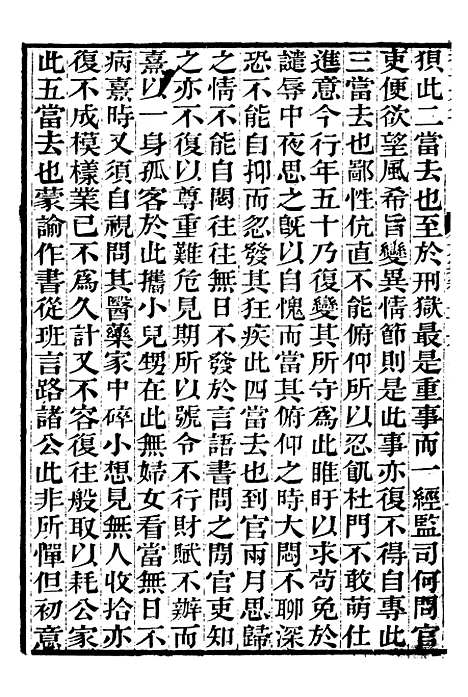 狽此二當去也至於刑獄最是重事而一經監司何問官
吏便欲望風希旨變異情節則是此事亦復不得自專此
三當去也鄙性伉直不能俯仰所以忍飢杜門不敢萌仕
進意今行年五十乃復變其所守為此睢盱以求苟免於
譴辱中夜思之旣以自愧而當其俯仰之時大悶不聊深
恐不能自抑而忽發其狂疾此四當去也到官兩月思歸
之情不能自閟往往無日不發於言語書問之閒官吏知
之亦不復以尊重難危見期所以號令不行財賦不辦而
熹以一身孤客於此攜小兒甥在此無婦女看當無日不
病熹時又須自視問其醫藥家中碎小想見無人收拾亦
復不成模樣業已不爲久計又不容復往般取以耗公家
此五當去也蒙諭作書從班言路諸公此非所憚但初意